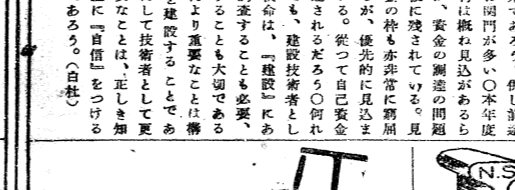 関門が多い〇本年度
は概ね見込があるら
、資金の調達の問題
に残されている。見
金の枠も亦非常に窮屈
が、優先的に見込ま
る。従つて自己資金
されるだろう〇何れ
も、建設技術者とし
命は、『建設』にあ
査することも必要、
ることも大切である
より重要なことは構
を建設することであ
して技術者として更
なことは、正しき知
に『自信』をつける
あろう。（白杜）
N.S